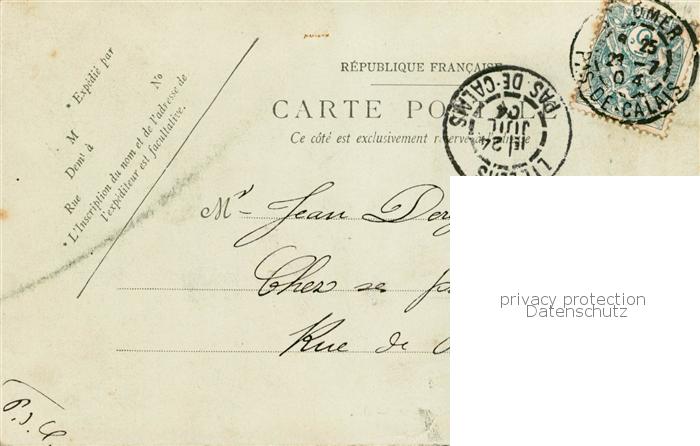 RÉPUBLIQUE FRANÇAISE
CARTE POSTALE
Ce côté est exclusivement réservé à l'adresse
* Expédié par
M
Demt à
Rue No
* L'Inscription du nom et de l'adresse de
l'expéditeur est facultative.
OMER
23 -7
04
PAS-DE-CALAIS
PAS-DE-CALAIS
24
JUIL
04
Mr Jean
Chez ses
Rue de
privacy protection
Datenschutz